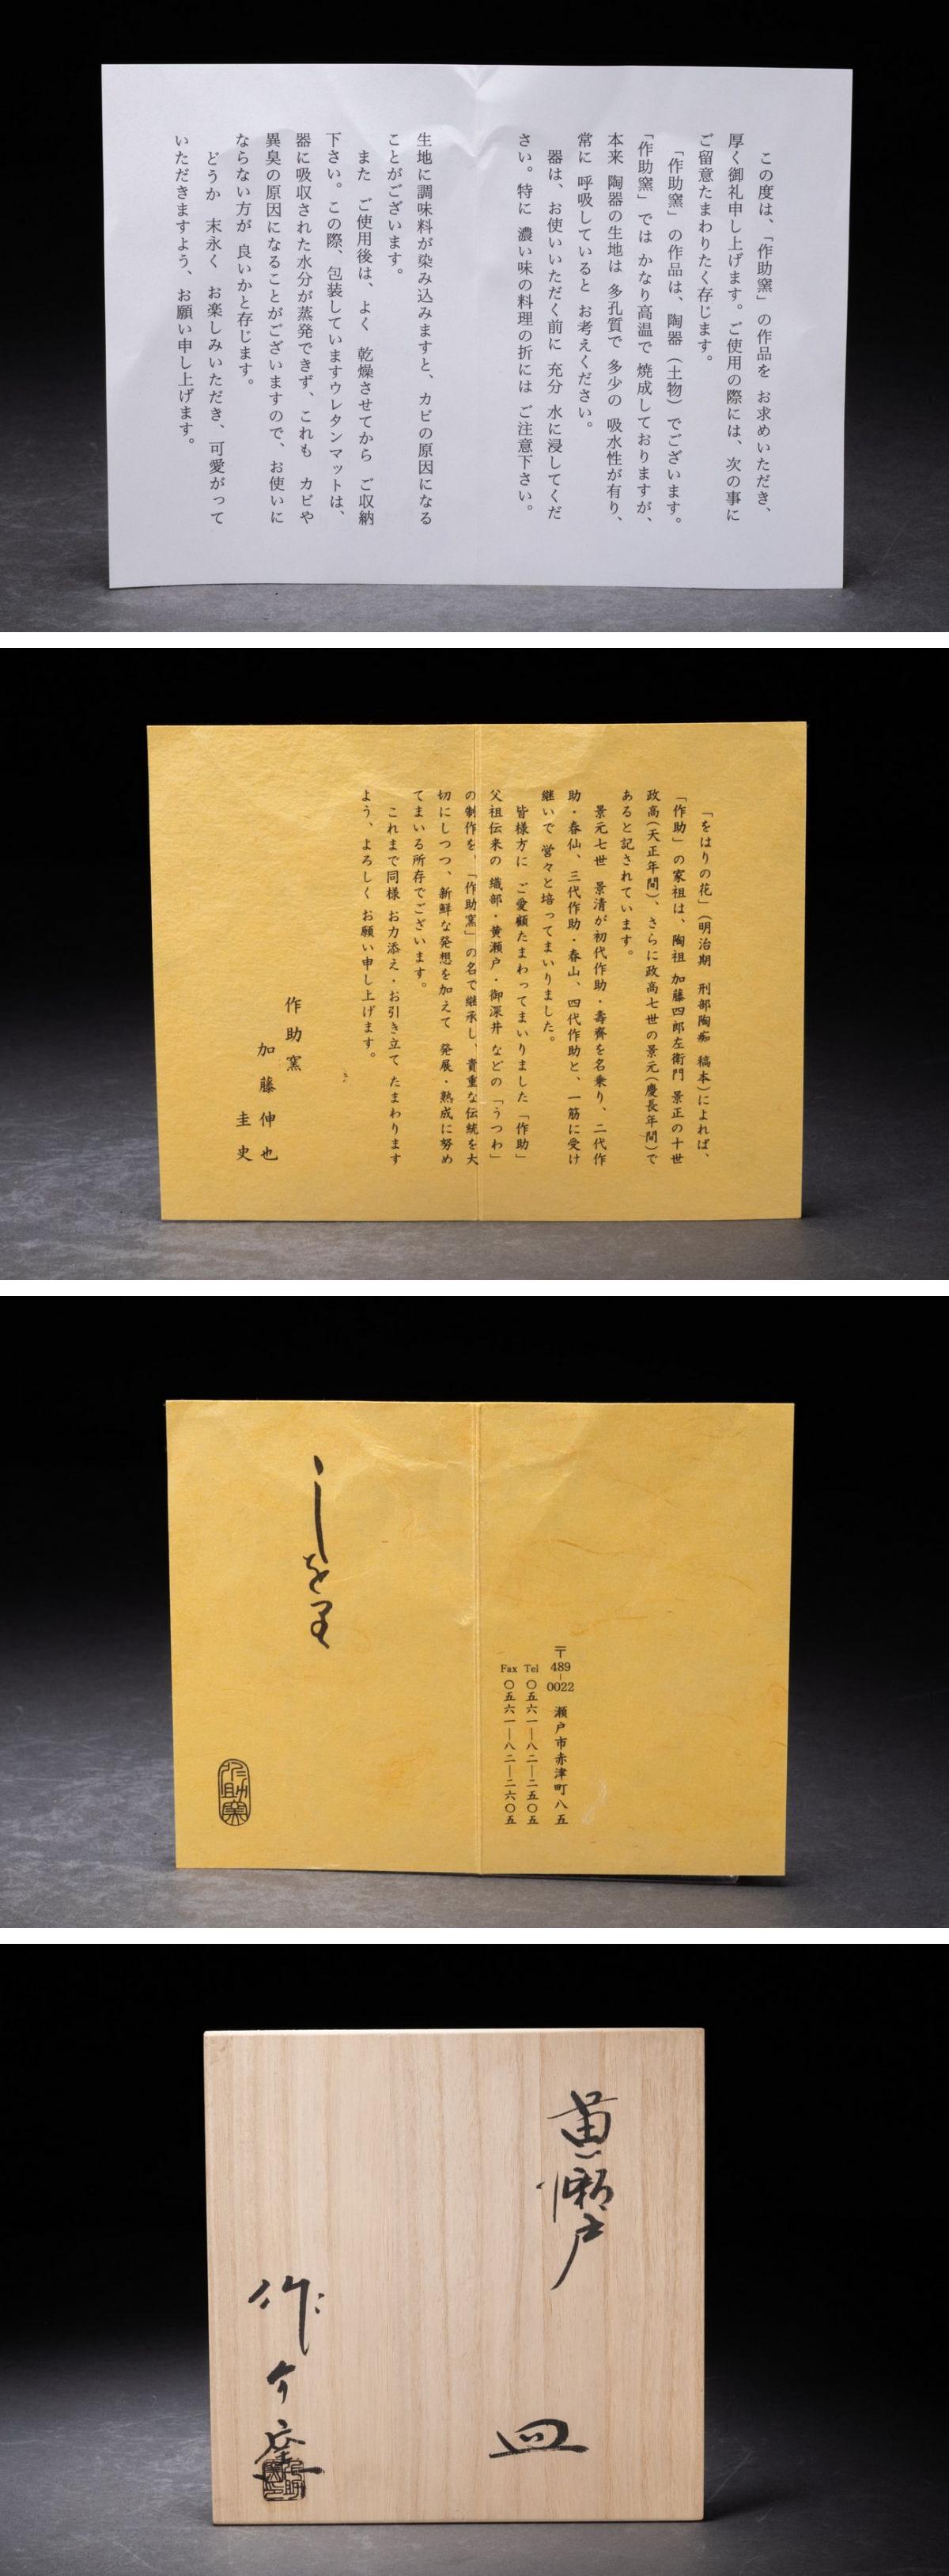 この度は、「作助窯」の作品を お求めいただき、
厚く御礼申し上げます。ご使用の際には、次の事に
ご留意たまわりたく存じます。
「作助窯」の作品は、陶器（土物）でございます。
「作助窯」では かなり高温で 焼成しておりますが、
本来 陶器の生地は 多孔質で 多少の 吸水性が有り、
常に 呼吸していると お考えください。
器は、お使いいただく前に 充分 水に浸してくだ
さい。特に 濃い味の料理の折には ご注意下さい。
生地に調味料が染み込みますと、カビの原因になる
ことがございます。
また ご使用後は、よく 乾燥させてから ご収納
下さい。この際、包装していますウレタンマットは、
器に吸収された水分が蒸発できず、これも カビや
異臭の原因になることがございますので、お使いに
ならない方が 良いかと存じます。
どうか 末永く お楽しみいただき、可愛がって
いただきますよう、お願い申し上げます。
「をはりの花」（明治期 刑部陶痴 稿本）によれば、
「作助」の家祖は、陶祖 加藤四郎左衛門 景正の十世
政高（天正年間）、さらに政高七世の景元（慶長年間）で
あると記されています。
景元七世 景清が初代作助・壽齊を名乗り、二代作
助・春仙、三代作助・春山、四代作助と、一筋に受け
継いで 営々と培ってまいりました。
皆様方に ご愛顧たまわってまいりました「作助」
父祖伝来の 織部・黄瀬戸・御深井 などの「うつわ」
の制作を、「作助窯」の名で継承し、貴重な伝統を大
切にしつつ、新鮮な発想を加えて 発展・熟成に努め
てまいる所存でございます。
これまで同様 お力添え・お引き立て たまわります
よう、よろしく お願い申し上げます。
作助窯
加藤 伸也
圭史
〒489-0022 瀬戸市赤津町八五
Tel 〇五六一―八二―二五〇五
Fax 〇五六一―八二―二六〇五
作助窯
黄瀬戸
皿
作介窯